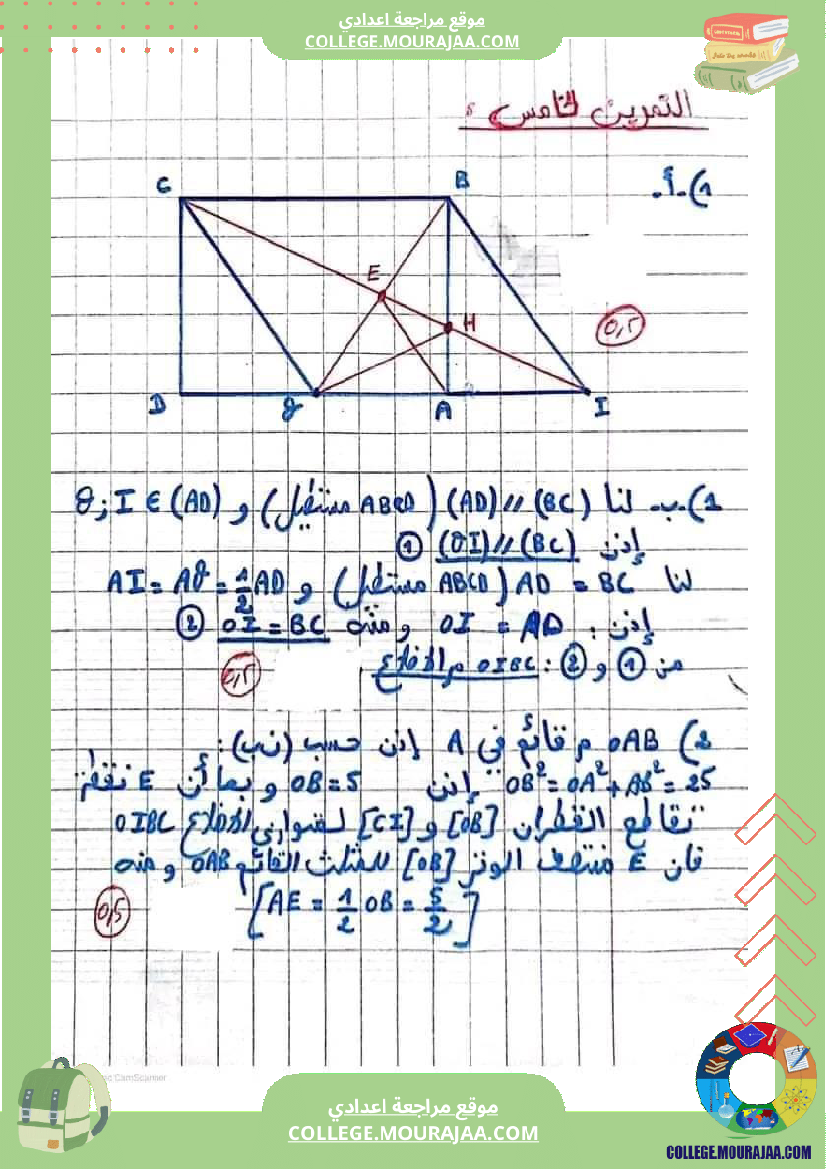 موقع مراجعة اعدادي
COLLEGE.MOURAJAA.COM
التمرين الخامس :
1) أ-
C
B
E
H
0,5
D
J
A
I
1) ب- لنا (AD) // (BC) (ABCD مستطيل) و J ; I ∈ (AD)
إذن (OI) // (BC) ①
لنا AD = BC (ABCD مستطيل) و AI = AJ = 1/2 AD
إذن : OI = AD ومنه OI = BC ②
من ① و ② : OIBC م الأضلاع
0,5
2) OAB م قائم في A إذن حسب :
OB² = OA² + AB² = 25 إذن OB = 5 و بما أن E نقطة
تقاطع القطران [OB] و [CI] لمتوازي الأضلاع OIBC
فان E منتصف الوتر [OB] للمثلث القائم OAB و منه
[AE = 1/2 OB = 5/2]
0,5
CamScanner
موقع مراجعة اعدادي
COLLEGE.MOURAJAA.COM
COLLEGE.MOURAJAA.COM